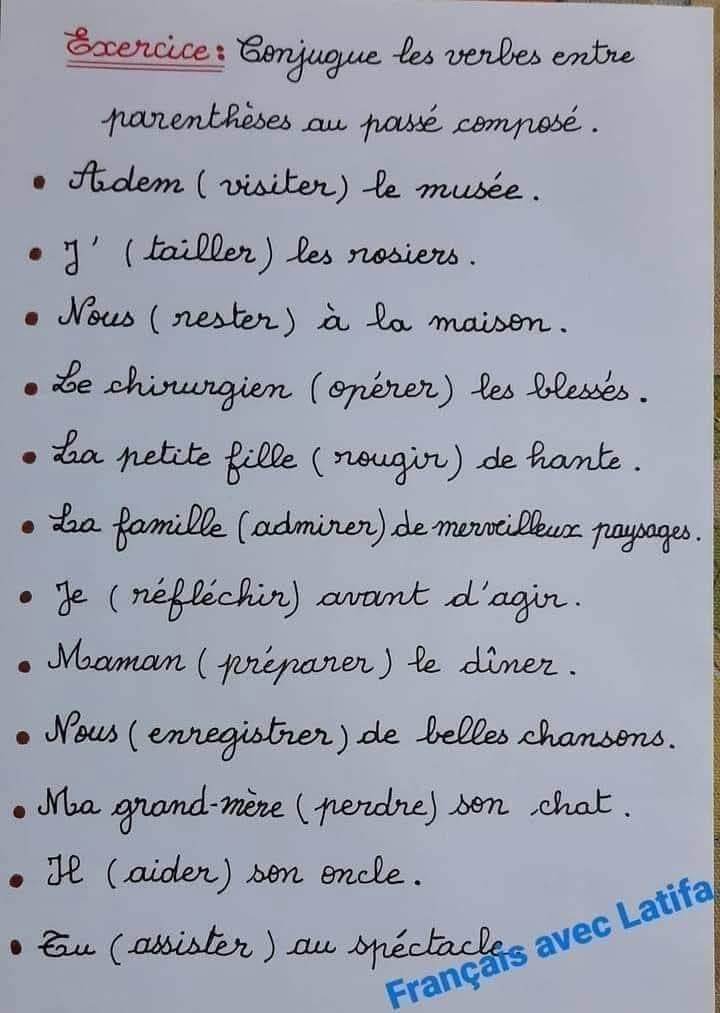 Exercice : Conjugue les verbes entre
parenthèses au passé composé.
• Adem ( visiter ) le musée .
• J' ( tailler ) les rosiers .
• Nous ( rester ) à la maison .
• Le chirurgien ( opérer ) les blessés .
• La petite fille ( rougir ) de hante .
• La famille ( admirer ) de merveilleux paysages .
• Je ( réfléchir ) avant d'agir .
• Maman ( préparer ) le dîner .
• Nous ( enregistrer ) de belles chansons .
• Ma grand-mère ( perdre ) son chat .
• Il ( aider ) son oncle .
• Tu ( assister ) au spéctacle
Français avec Latifa